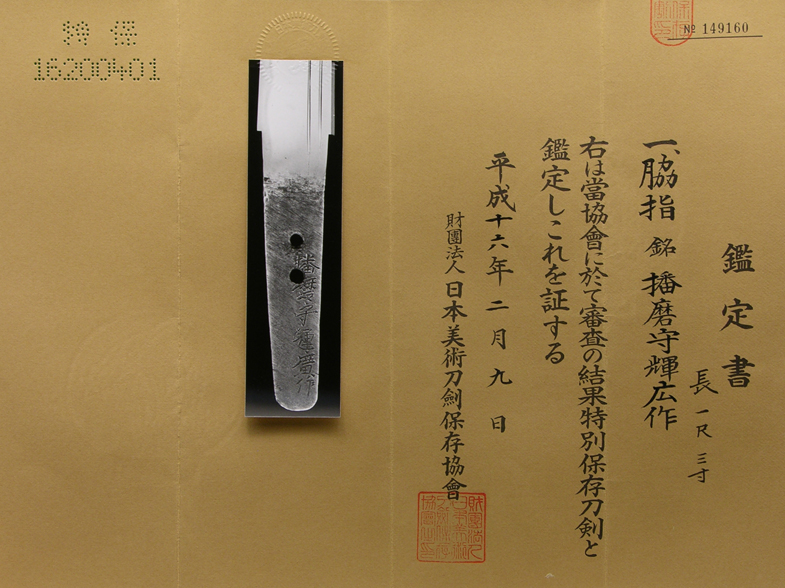 鑑定書
№ 149160
一、脇指 銘 播磨守輝広作
長一尺三寸
右は當協會に於て審査の結果特別保存刀剣と
鑑定しこれを証する
平成十六年二月九日
財團法人 日本美術刀劍保存協會
播磨守輝廣作
特保
16200401